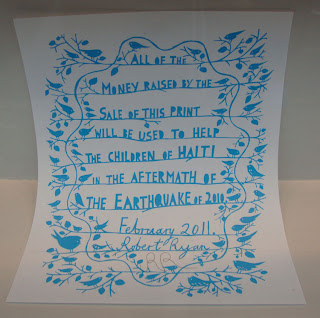 ALL OF THE
MONEY RAISED BY THE
SALE OF THIS PRINT
WILL BE USED TO HELP
THE CHILDREN OF HAITI
IN THE AFTERMATH OF
THE EARTHQUAKE OF 2010
February 2011.
Robert Ryan
RR